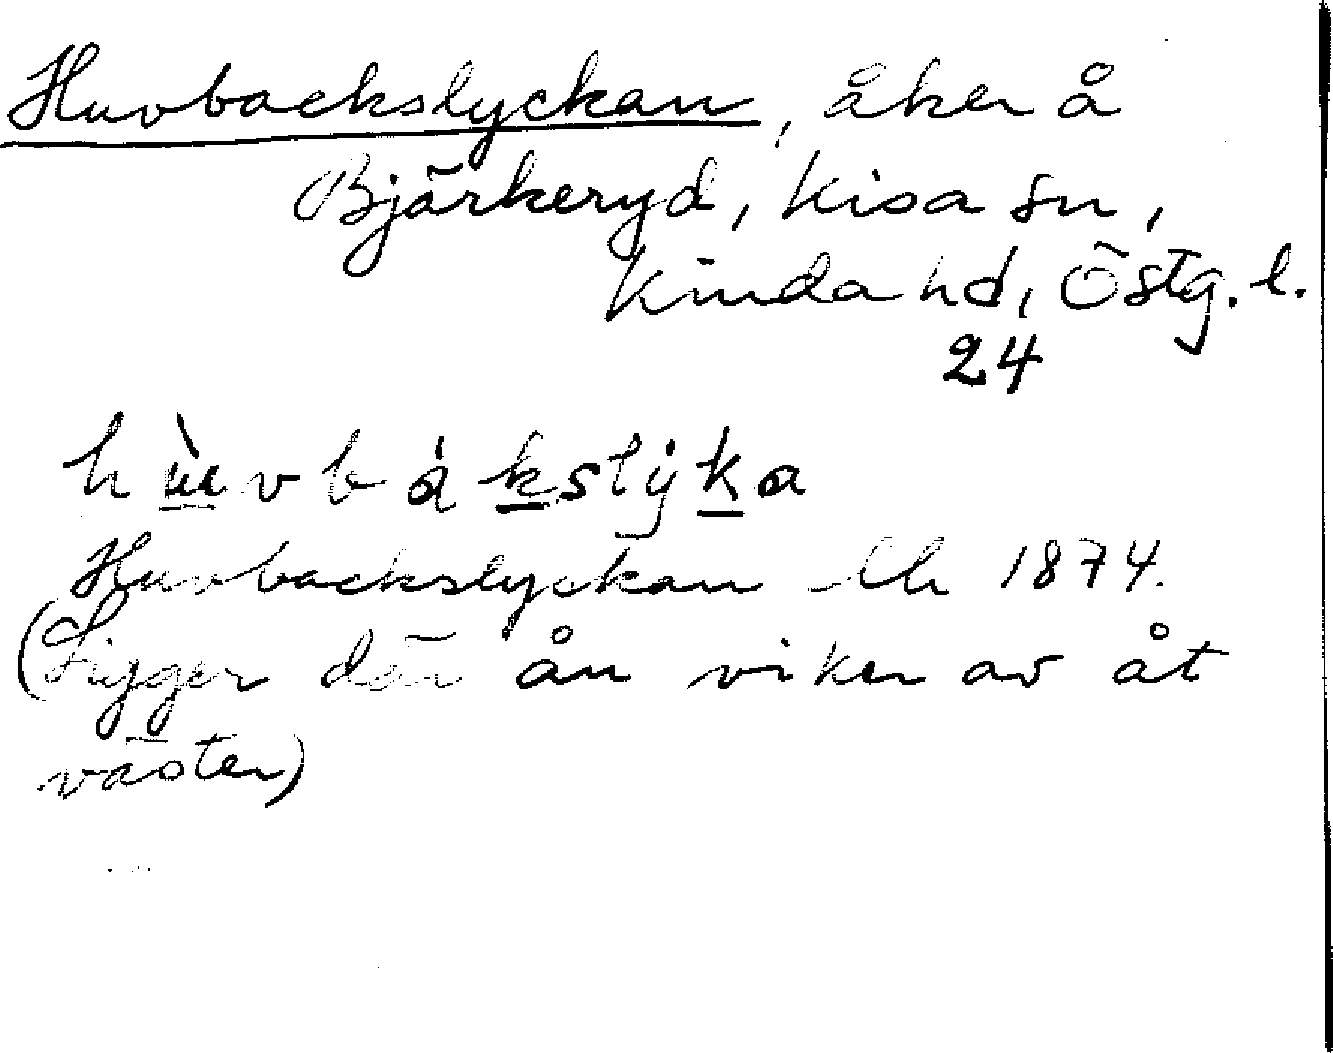 Huvbackslyckan, åker å
Bjärkeryd, Kisa sn,
Kinda hd, Östg. l.
24
hùvbákslýka
Huvbackslyckan Lh 1874.
(Ligger där ån viker av åt
väster)